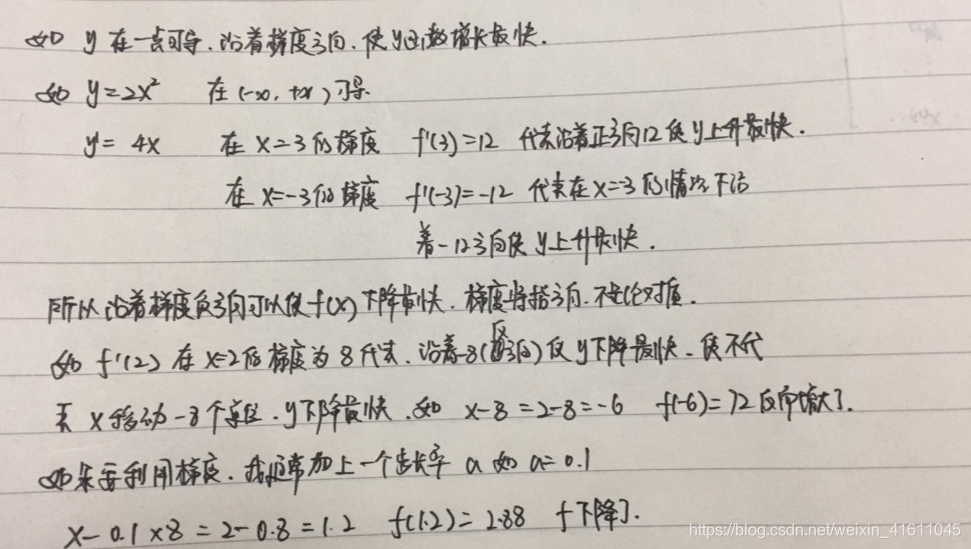 如 y 在一点可导. 沿着梯度方向, 使y函数增长最快.
如 y=2x² 在 (-∞, +∞) 可导.
y= 4x 在 x=3 的梯度 f'(3)=12 代表沿着正方向12 使 y上升最快.
在 x=-3的梯度 f'(-3)=-12 代表在x=-3的情况下沿
着-12方向使y上升最快.
所以沿着梯度负方向可以使f(x)下降最快. 梯度 指方向. 不 对值.
如 f'(2) 在 x=2的梯度为8代表. 沿着-8(反方向)使y下降最快. 但不代
表 x移动-8个单位. y下降最快. 如 x-8=2-8=-6 f(-6)=72反而增大了.
如果要利用梯度. 我们通常加上一个步长率 a 如 a=0.1
x-0.1×8=2-0.8=1.2 f(1.2)=2.88 f下降了.
https://blog.csdn.net/weixin_41611045